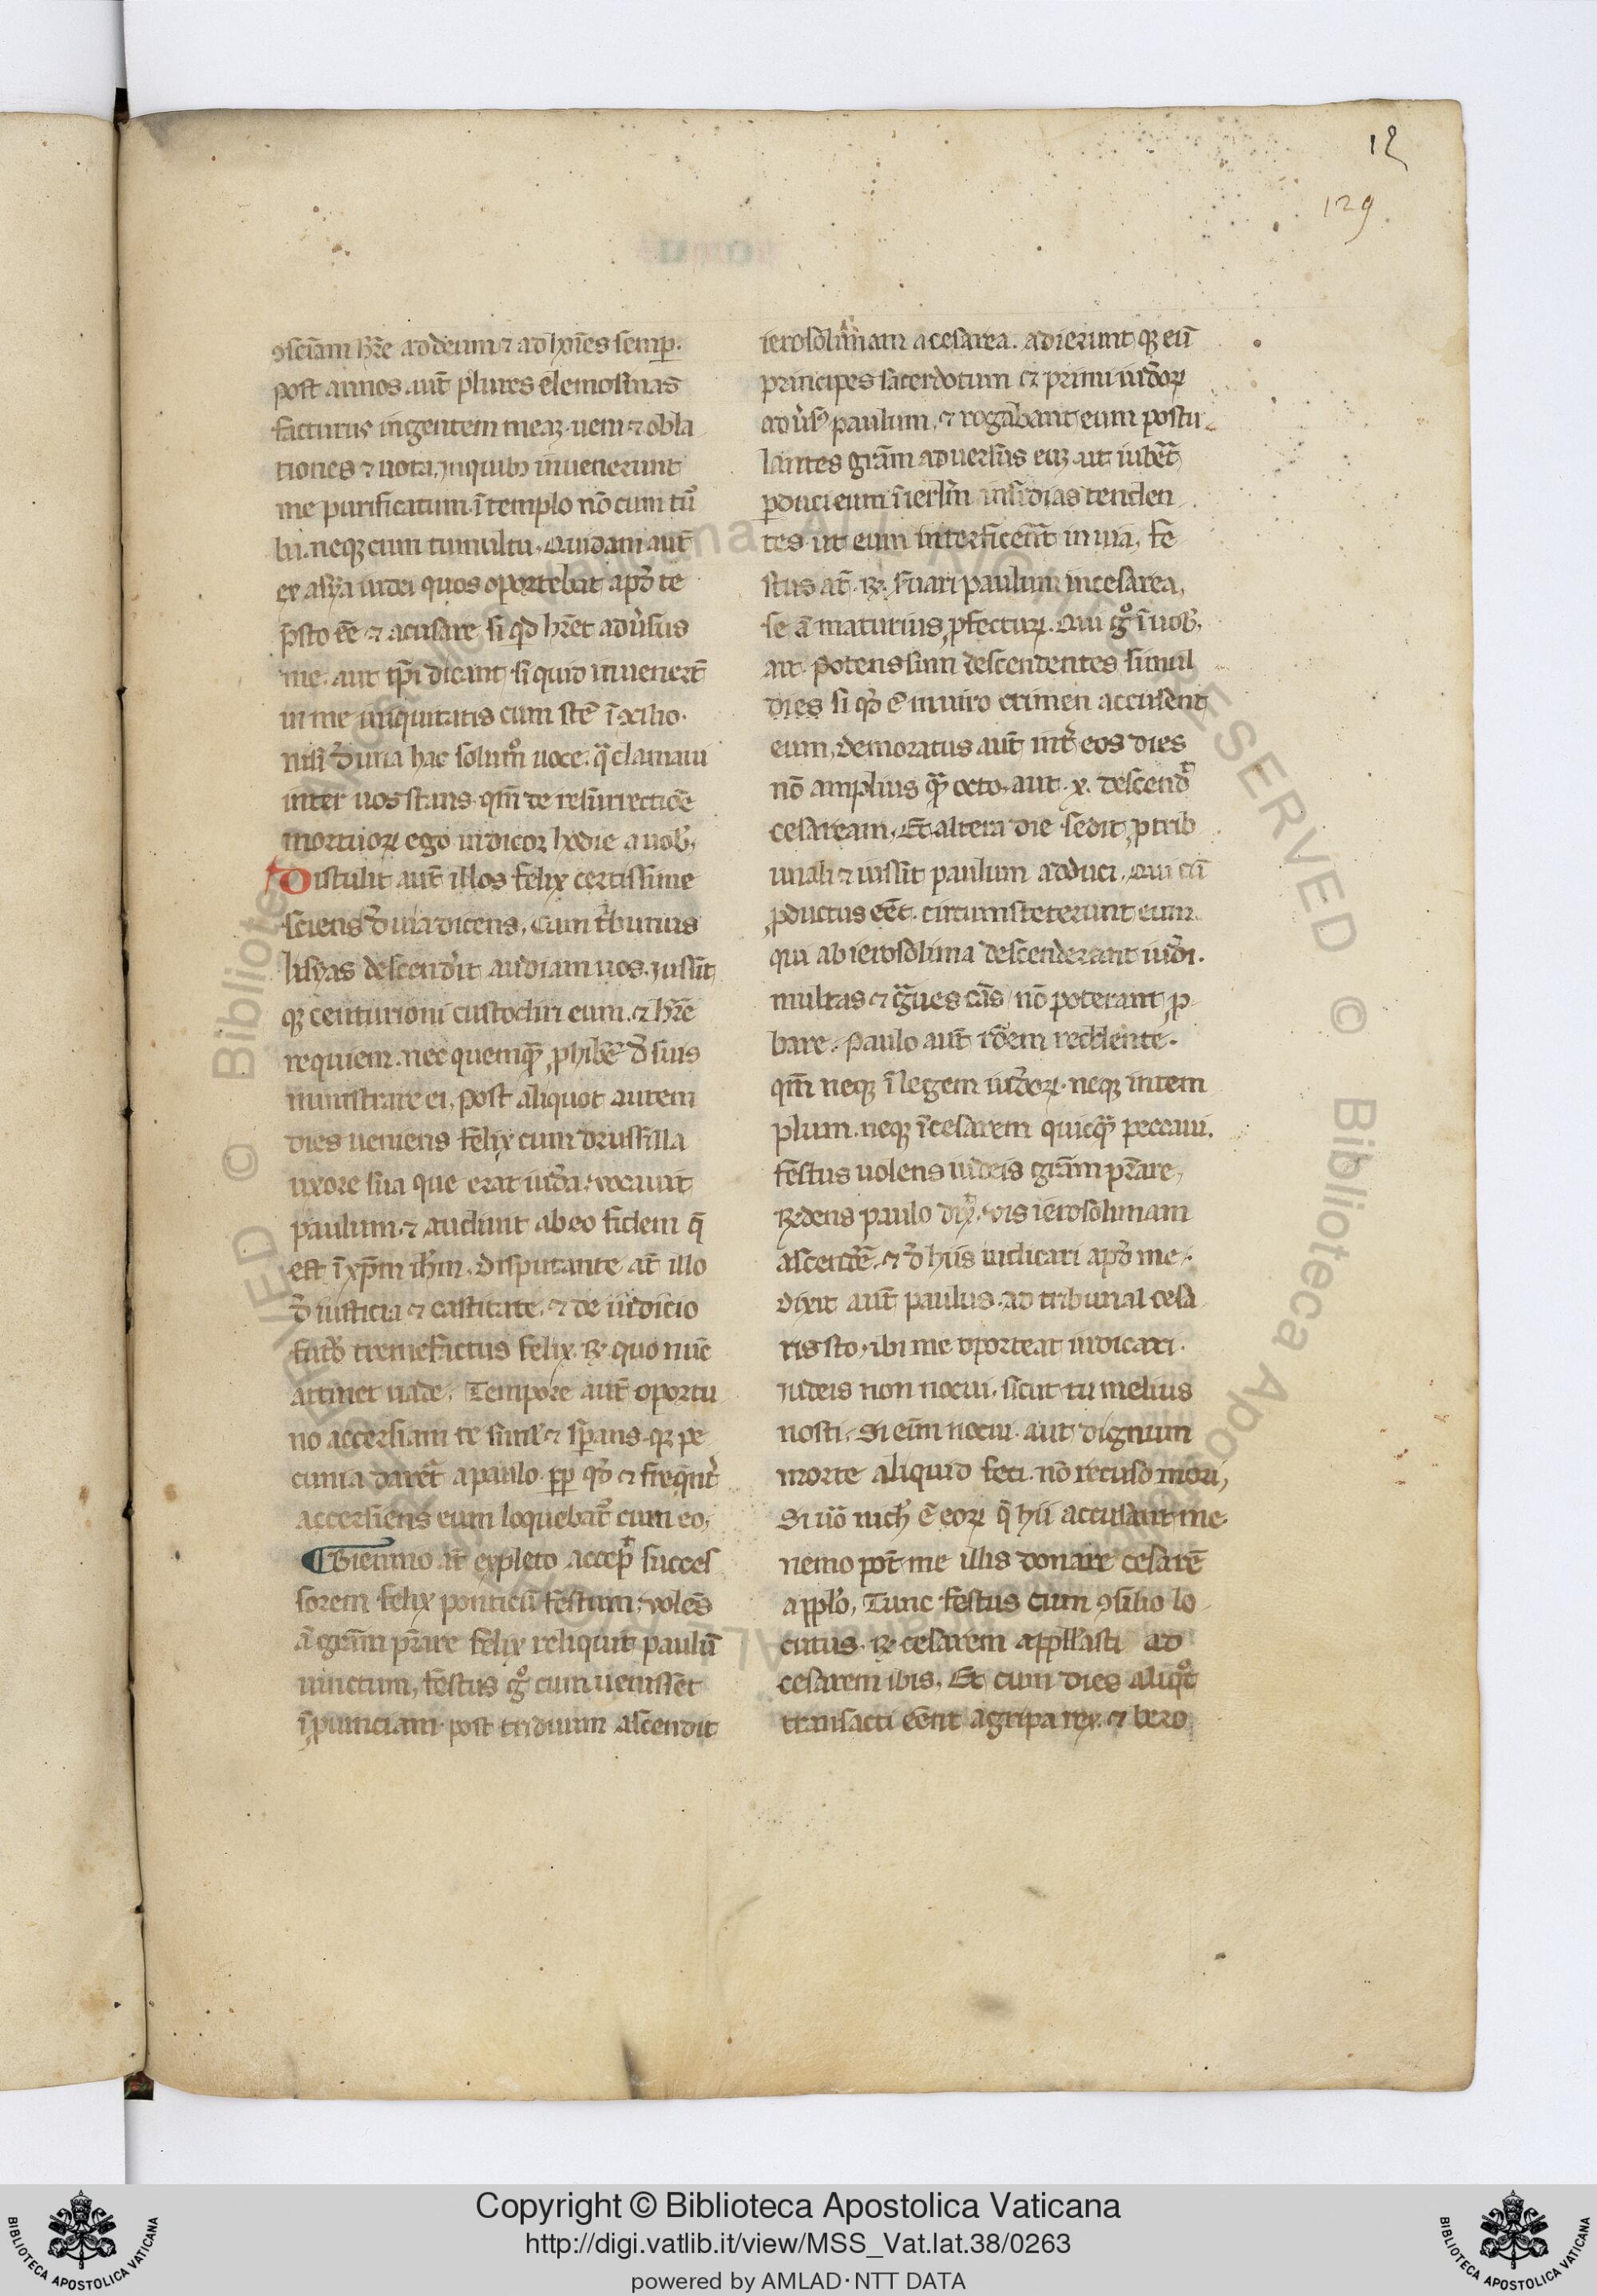 12
129
ꝯsciam hr̄e ad deum ⁊ ad hoı̄es semꝑ.
post annos aut̄ plures elemosinas
facturus in gentem meaꝫ ueni ⁊ obla
tiones ⁊ uota, in quibꝫ inuenerunt
me purificatum ı̄ templo nō cum tur
ba. neqꝫ cum tumultu. Quidam aut̄
ex asya iudei quos oportebat apđ te
p̄sto eē ⁊ acusare si qđ hr̄et adūsus
me. aut ip̄i dicant si quid inuenert̄
in me iniquitatis cum stē ı̄ ꝯcilio.
nisi đ una hac solumº uoce. q̄ clamaui
inter uos stans. qm̄ de resurrectiōe
mortuoꝝ ego iudicor hodie a uob̄.
Distulit aut̄ illos felix certissime
sciens đ uia dicens. Cum tͥbunus
lisyas descendīt audiam uos. iussit
qꝫ centurioni custodiri eum. ⁊ hr̄e
requiem. nec quemqᷓ ꝓhibe᷑ đ suis
ministrare ei. Post aliquot autem
dies ueniens felix cum drussilla
uxore sua que erat iuđa. uocauit
paulum. ⁊ audiuit ab eo fidem q̄
est ı̄ xp̄m ih̄m. Disputante at̄ illo
đ iusticia ⁊ castitate. ⁊ de iudicio
futo tremefactus felix. R. quo nūc
attinet uade. Tempore aut̄ oportu
no accersiam te simł ⁊ sꝑans. qꝫ pe
cunia daret᷑ a paulo. ꝓp qđ ⁊ freq̄nt̄
accersiens eum loquebat᷑ cum eo.
Biennio at̄ expleto accepͭ succes
sorem felix porticū festum. uolēs
ā gram̄ p̄rare felix reliquit paulū
uinctum. festus gͦ cum uenisset
ı̄ ꝓuinciam. post triduum ascendit
ierosolimam a cesarea. adierunt qꝫ eū
principes sacerdotum ⁊ primi iuđoꝝ
adūsꝰ paulum. ⁊ rogabant eum postu
lantes gram̄ aduersus euꝫ. ut iubet᷑
ꝑduci eum ı̄ ierlm̄ insidias tenden
tes. ut eum interficent̄ in uia. fe
stus at̄. R. s̄uari paulum in cesarea.
se ā maturius ꝓfectuꝝ. Qui gͦ ı̄ uob̄.
ait. potens sunt descendentes simul
dies si qđ ē in uiro crimen accusent
eum. demoratus aut̄ int̄ eos dies
nō amplius qᷓ octo. aut .x. descendͭ
cesaream. Et altera die sedit ꝓ trib
unali ⁊ iussit paulum adduci. Qui cū
ꝓductus eēt. circumsteterunt eum
qui ab ierosolima descenderant iuđi.
multas ⁊ gᷓues cās nō poterant ꝓ
bare. Paulo aut̄ rōem reddente.
qm̄ neqꝫ ı̄ legem iuđoꝝ. neqꝫ in tem
plum. neqꝫ ı̄ cesarem quicqᷓ peccaui.
festus uolens iudeis gram̄ p̄rare,
R̄dens paulo dixͭ. vis ierosolimam
ascendē. ⁊ đ hiis iudicari apđ me.
dixit aut̄ paulus. ad tribunal cesa
ris sto. ibi me oporteat iudicari.
Iudeis non nocui. sicut tu melius
nosti. Si eım̄ nocui. aut dignum
morte aliquid feci. nō recuso mori,
Si uͦo nich ē eoꝝ q̄ hii accusant me.
nemo pōt me illis donare cesarē
applo. Tunc festus cum ꝯsilio lo
cutus. R. cesarem appellasti ad
cesarem ibis. Et cum dies aliqͦt
transacti eēnt agripa rex. ⁊ bero
Copyright © Biblioteca Apostolica Vaticana
http://digi.vatlib.it/view/MSS_Vat.lat.38/0263
powered by AMLAD·NTT DATA